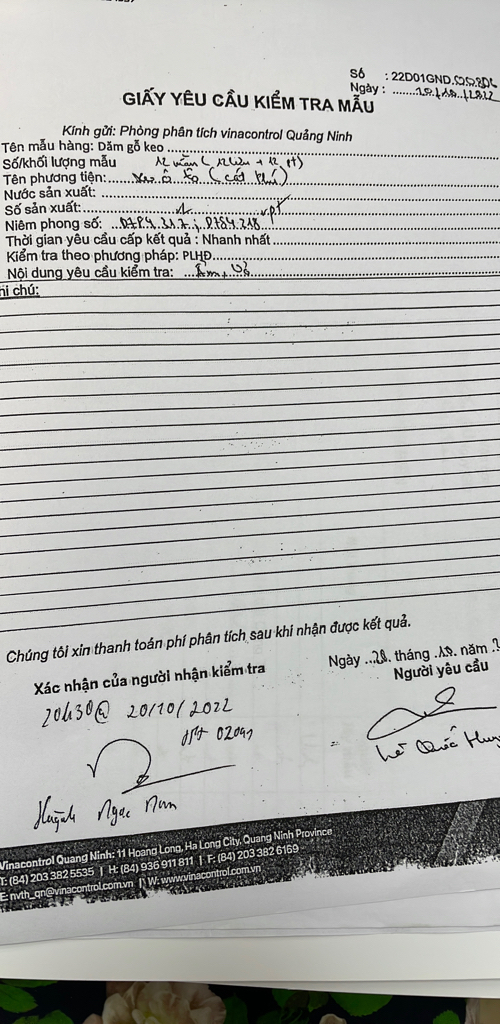 Số : 22D01GND
Ngày :
GIẤY YÊU CẦU KIỂM TRA MẪU
Kính gửi: Phòng phân tích vinacontrol Quảng Ninh
Tên mẫu hàng: Dăm gỗ keo
Số/khối lượng mẫu
Tên phương tiện: Xe ô tô
Nước sản xuất:
Số sản xuất:
Niêm phong số:
Thời gian yêu cầu cấp kết quả : Nhanh nhất
Kiểm tra theo phương pháp: PLHĐ
Nội dung yêu cầu kiểm tra: Ẩm,
hi chú:
Chúng tôi xin thanh toán phí phân tích sau khi nhận được kết quả.
Ngày 20 tháng 10 năm
Xác nhận của người nhận kiểm tra
Người yêu cầu
20h30 @ 20/10/2022
Lê Quốc
Huỳnh Ngọc
Vinacontrol Quang Ninh: 11 Hoang Long, Ha Long City, Quang Ninh Province
T: (84) 203 382 5535 | H: (84) 936 911 811 | F: (84) 203 382 6169
E: nvth_qn@vinacontrol.com.vn | W: www.vinacontrol.com.vn